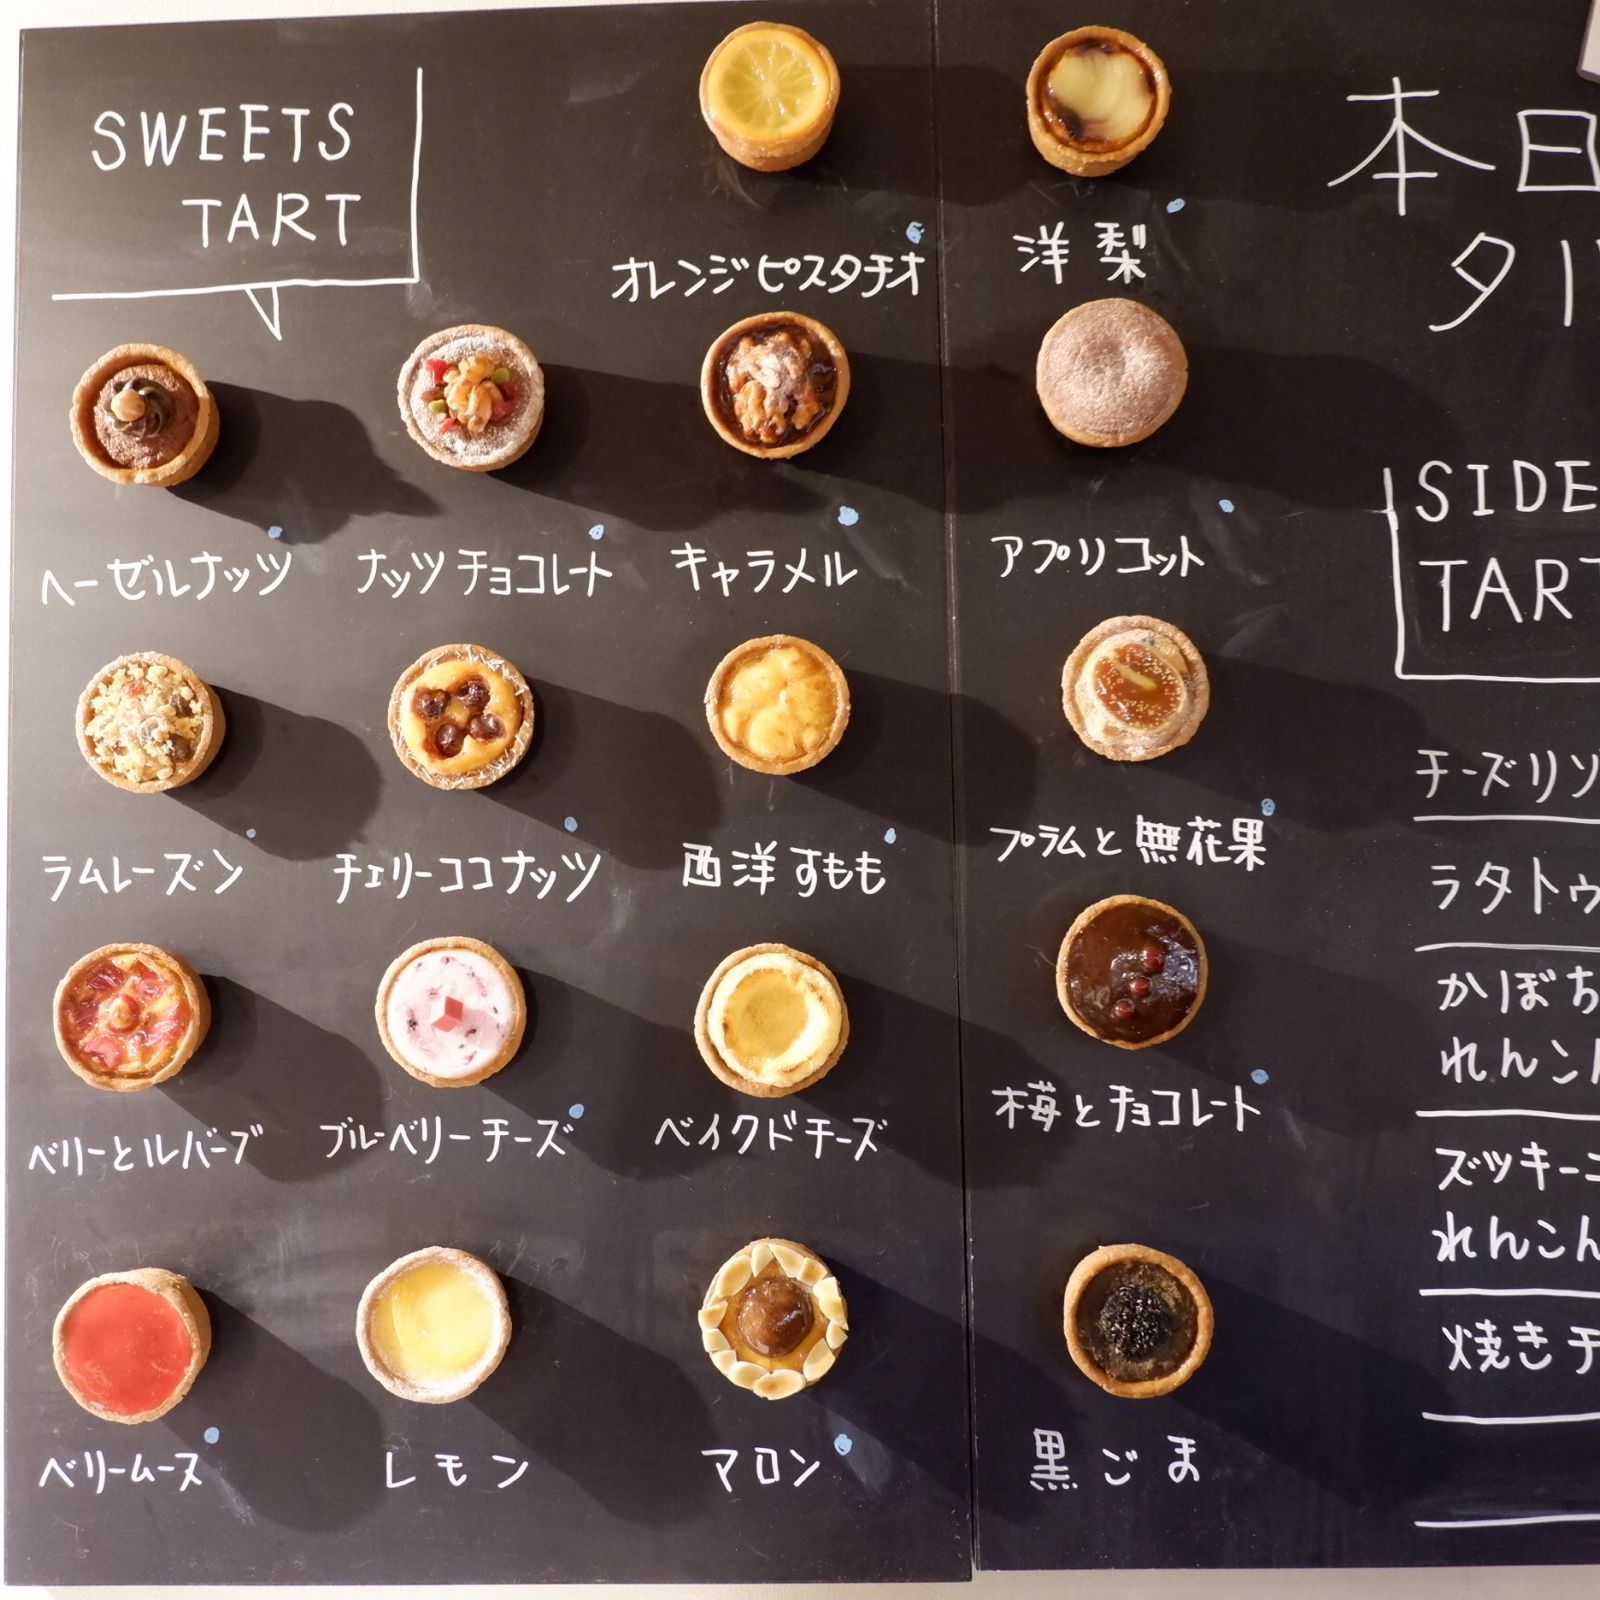 SWEETS
TART
オレンジピスタチオ
洋梨
ヘーゼルナッツ
ナッツチョコレート
キャラメル
アプリコット
ラムレーズン
チェリーココナッツ
西洋すもも
プラムと無花果
ベリーとルバーブ
ブルーベリーチーズ
ベイクドチーズ
梅とチョコレート
ベリームース
レモン
マロン
黒ごま
本日
タル
SIDE
TART
チーズリゾ
ラタトゥ
かぼち
れんこん
ズッキーニ
れんこん
焼きチ